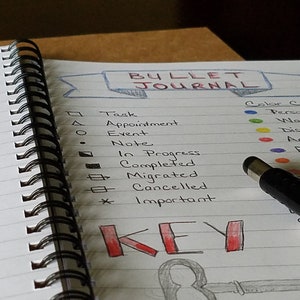 BULLET
JOURNAL
Color C
Task
Appointment
Event
Note
In Progress
Completed
Migrated
Cancelled
Important
KEY